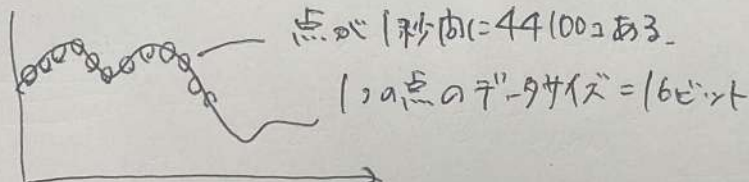 点が1秒間に44100コある。
1つの点のデータサイズ=16ビット